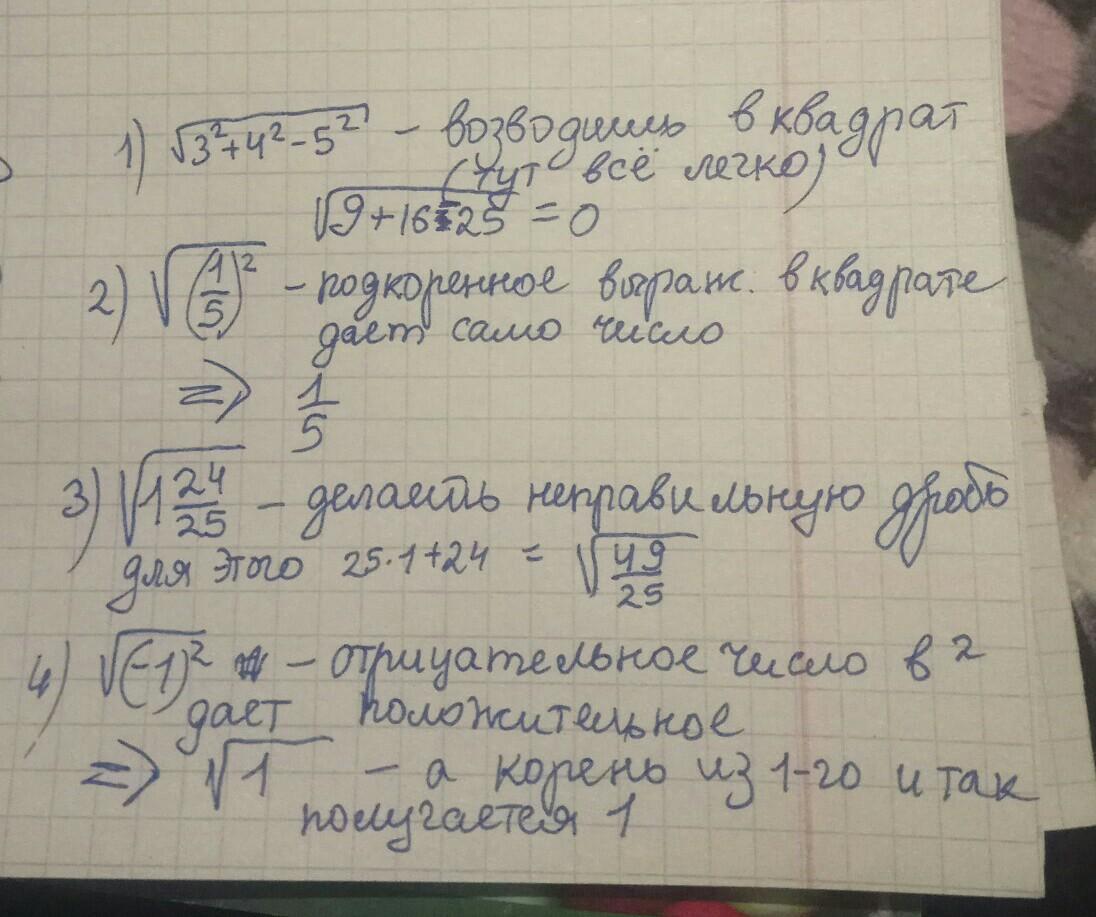 1) √3²+4²-5² – возводишь в квадрат
(тут всё легко)
√9+16-25 = 0
2) √(1/5)² – подкоренное выраж. в квадрате
дает само число
=> 1/5
3) √1 24/25 – делаешь неправильную дробь
для этого 25·1+24 = √49/25
4) √(-1)² – отрицательное число в 2
дает положительное
=> √1 – а корень из 1-го и так
получается 1